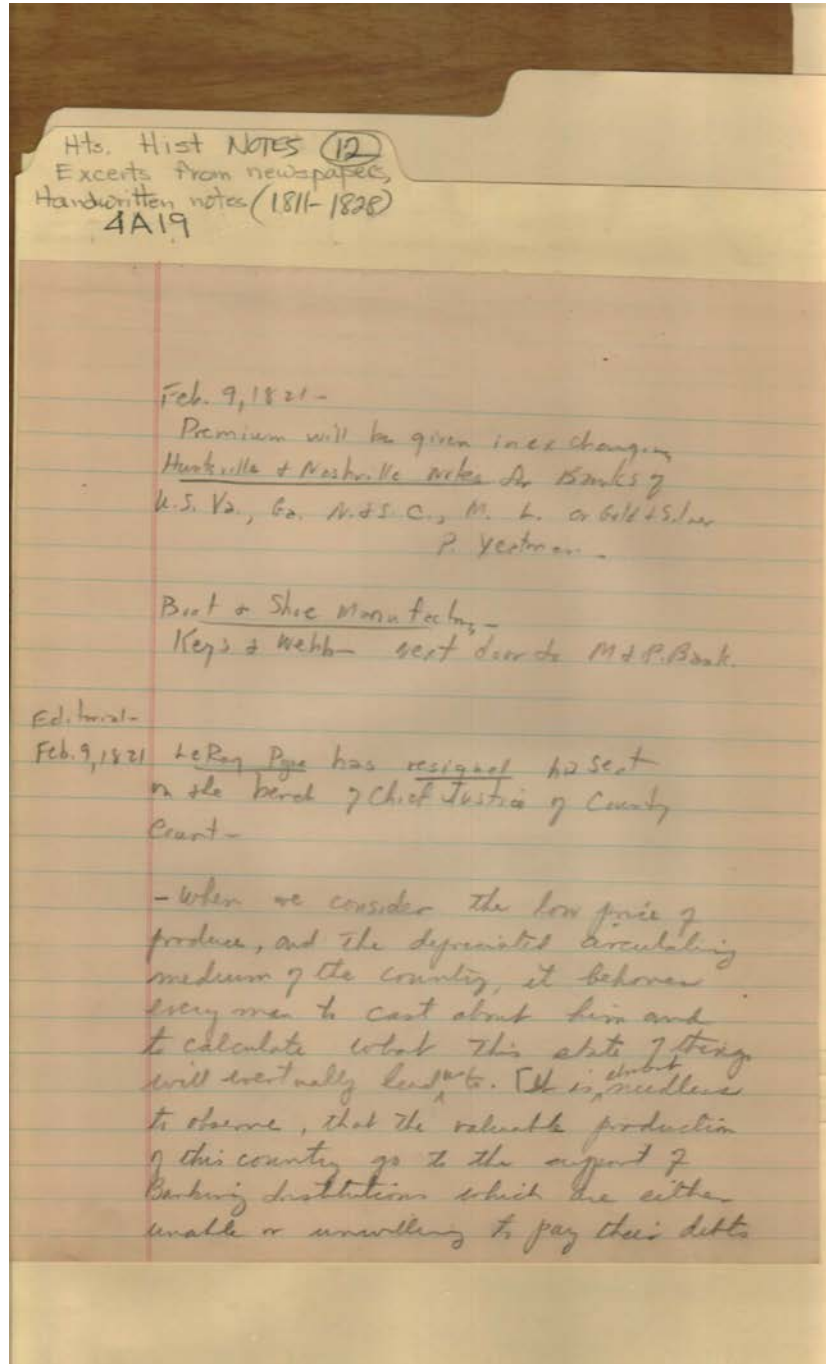 Hts. Hist NOTES 12
Excerts from newspapers,
Handwritten notes (1811-1828)
4A19
Feb. 9, 1821 -
Premium will be given in exchanging
Huntsville & Nashville notes for Banks of
U.S. Va., Ga. N. & S. C., M. L. or Gold & Silver
P. Yeatman -
Boot & Shoe Manufactory -
Keys & Webb - next door to M & P. Bank.
Editorial -
Feb. 9, 1821 LeRoy Pope has resigned his seat
on the bench of Chief Justice of County
Court -
- When we consider the low price of
produce, and the depreciated circulating
medium of the country, it behoves
every man to cast about him and
to calculate what this state of things
will eventually lead us to. [It is almost needless
to observe, that the valuable production
of this country go to the support of
Banking Institutions which are either
unable or unwilling to pay their debts